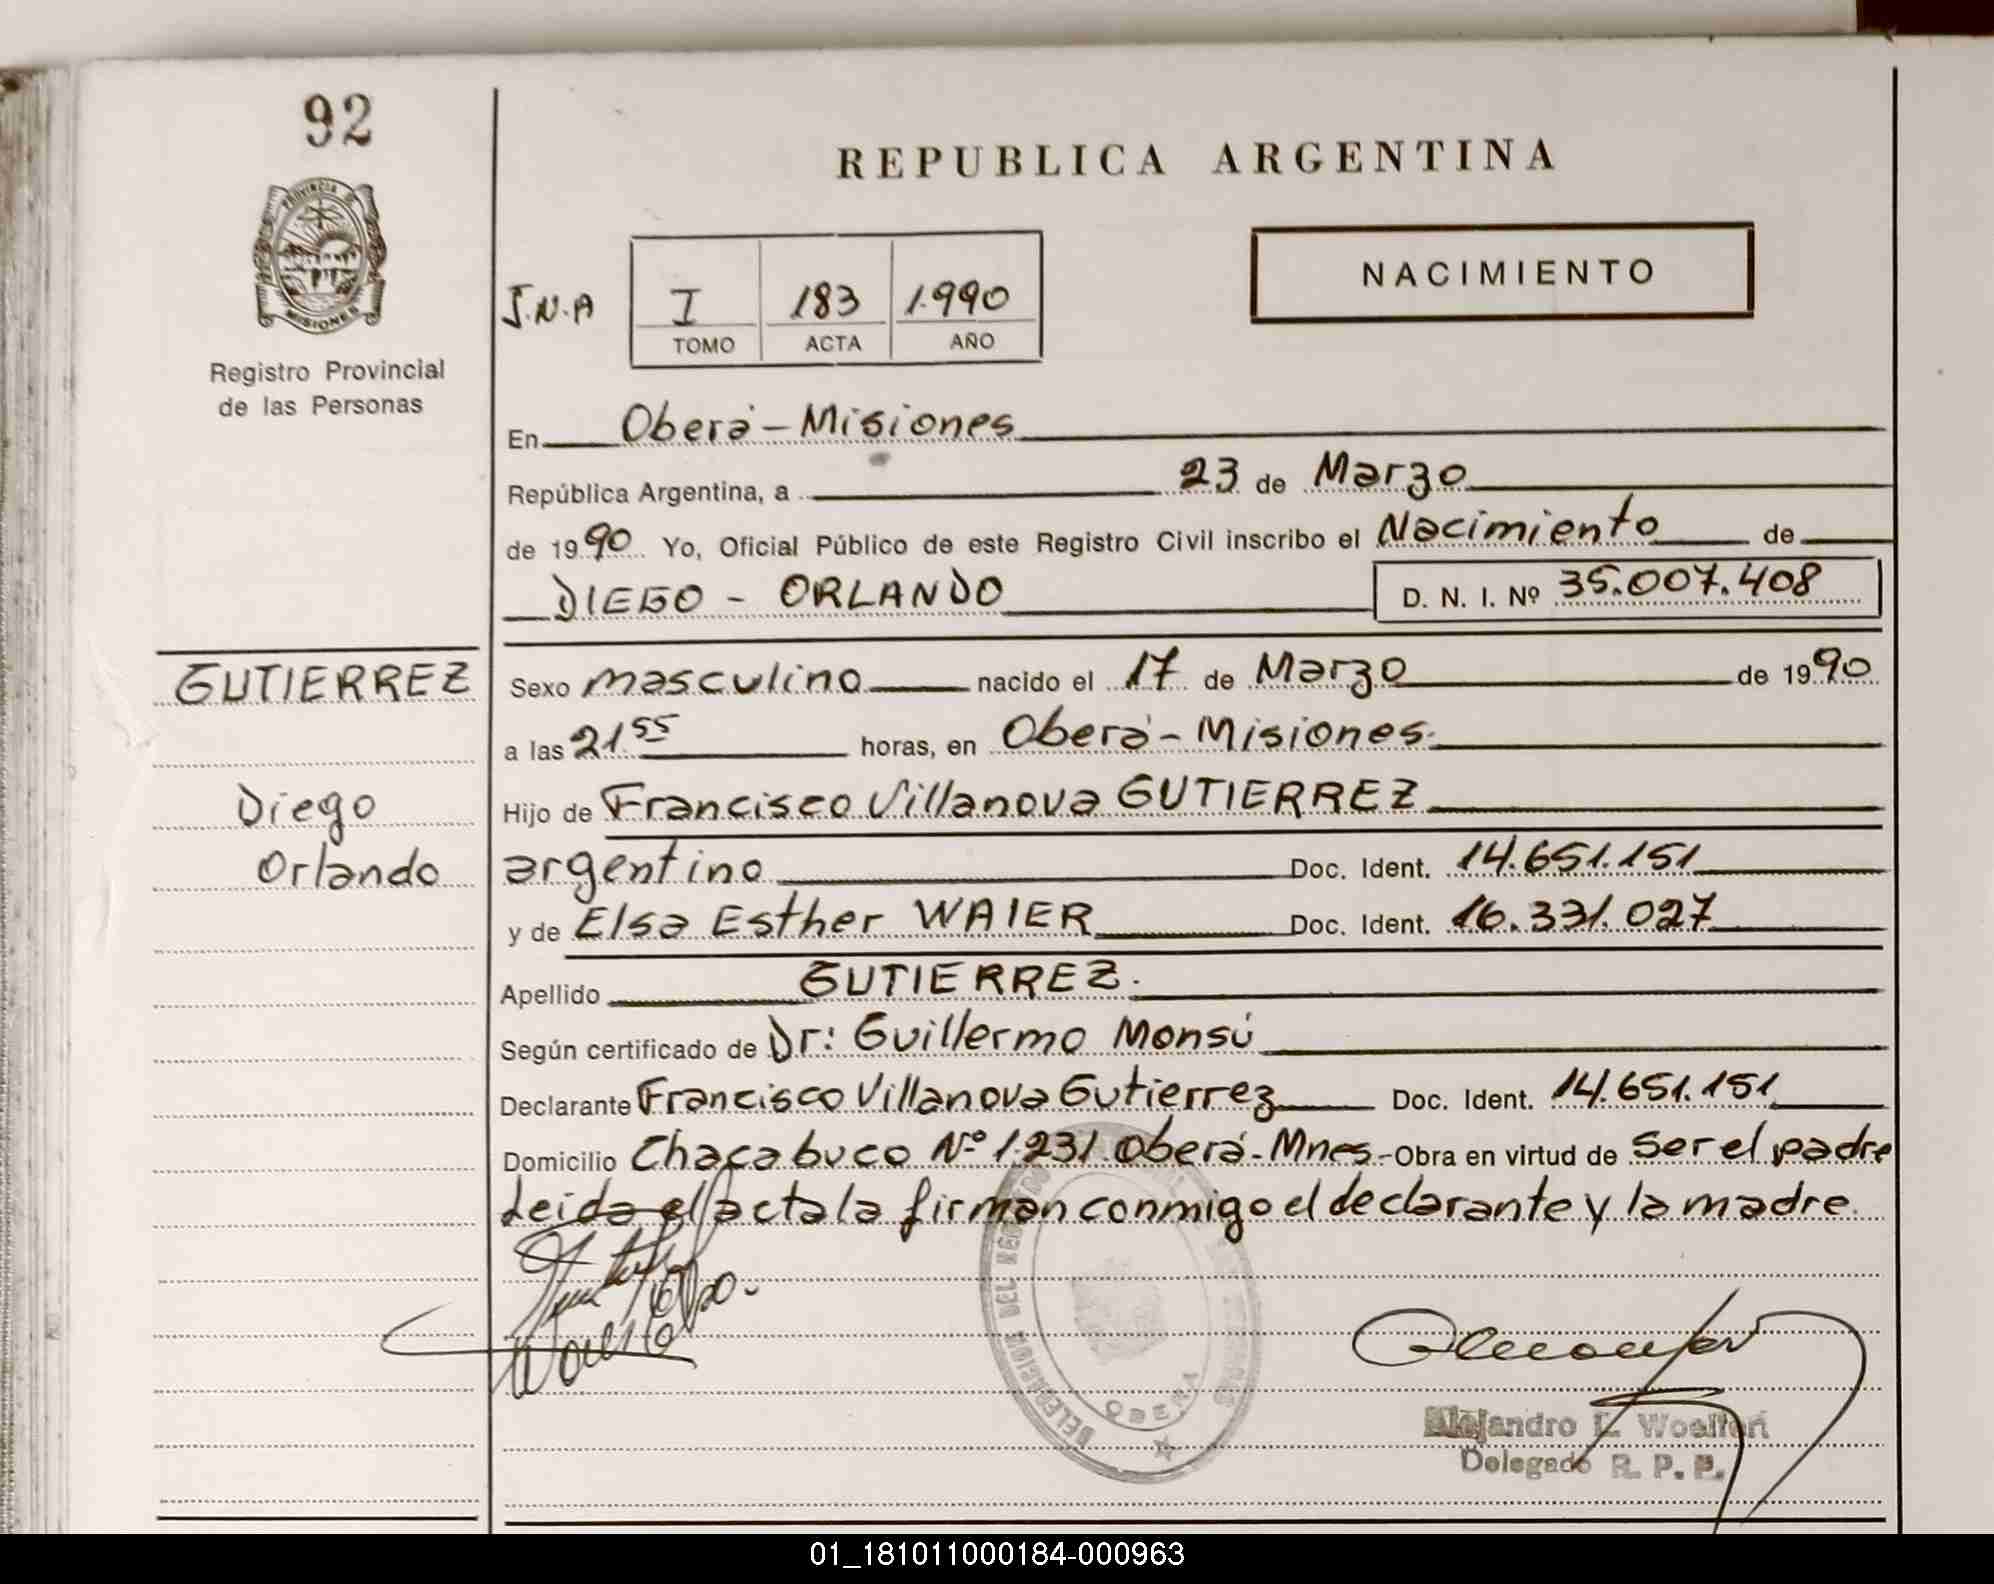 92
PROVINCIA
MISIONES
Registro Provincial
de las Personas
REPUBLICA ARGENTINA
NACIMIENTO
J.N.A I 183 1.990
TOMO ACTA AÑO
En Oberá - Misiones
República Argentina, a 23 de Marzo
de 1990 Yo, Oficial Público de este Registro Civil inscribo el Nacimiento de
DIEGO - ORLANDO D. N. I. Nº 35.007.408
GUTIERREZ
Diego
Orlando
Sexo masculino nacido el 17 de Marzo de 1990
a las 21 55 horas, en Oberá - Misiones.
Hijo de Francisco Villanova GUTIERREZ
argentino Doc. Ident. 14.651.151
y de Elsa Esther WAIER Doc. Ident. 16.331.027
Apellido GUTIERREZ.
Según certificado de Dr: Guillermo Monsú
Declarante Francisco Villanova Gutierrez Doc. Ident. 14.651.151
Domicilio Chacabuco Nº 1.231 Oberá - Mnes.- Obra en virtud de ser el padre
Leida el acta la firman conmigo el declarante y la madre.
DELEGACION DEL REGISTRO
OBERA
Alejandro E.
Delegado R. P. P.
01_181011000184-000963